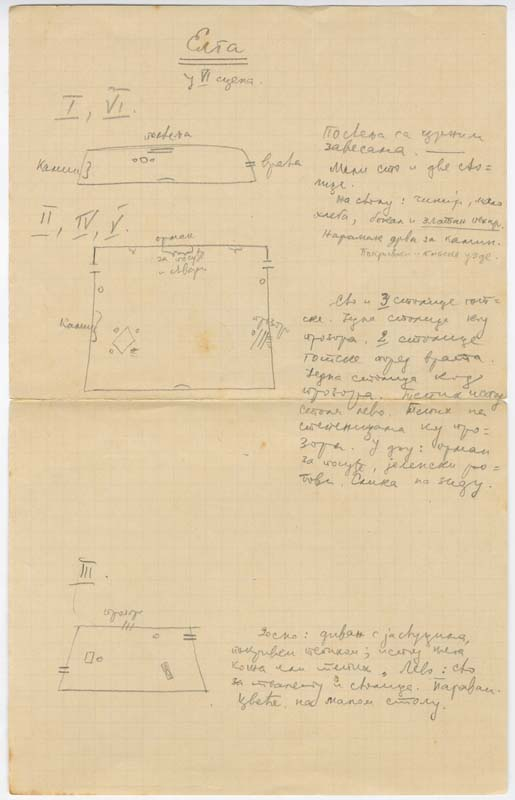 Елга
у VI сцена.
I, VI.
постеља
Камин
врата
Постеља са црним
завесама.
Мали сто и две сто=
лице.
На столу: чинија, мало
хлеба, бокал и златан пехар.
Нарамак дрва за камин.
II, IV, V.
орман
за посуђе
и ствари
Камин
прозор
Сто и 3 столице гот=
ске. Једна столица код
прозора. 2 столице
готске поред врата.
Једна столица код
прозора. Тепих испод
стола лево. Тепих на
степеницама код про=
зора. У дну: орман
за посуђе, јеленски ро=
гови. Слика на зиду.
III.
прозор
Десно: диван с јастуцима,
покривен тепихом; испод њега
кожа или тепих. Лево: сто
за тоалету и столица. Параван.
Цвеће на малом столу.